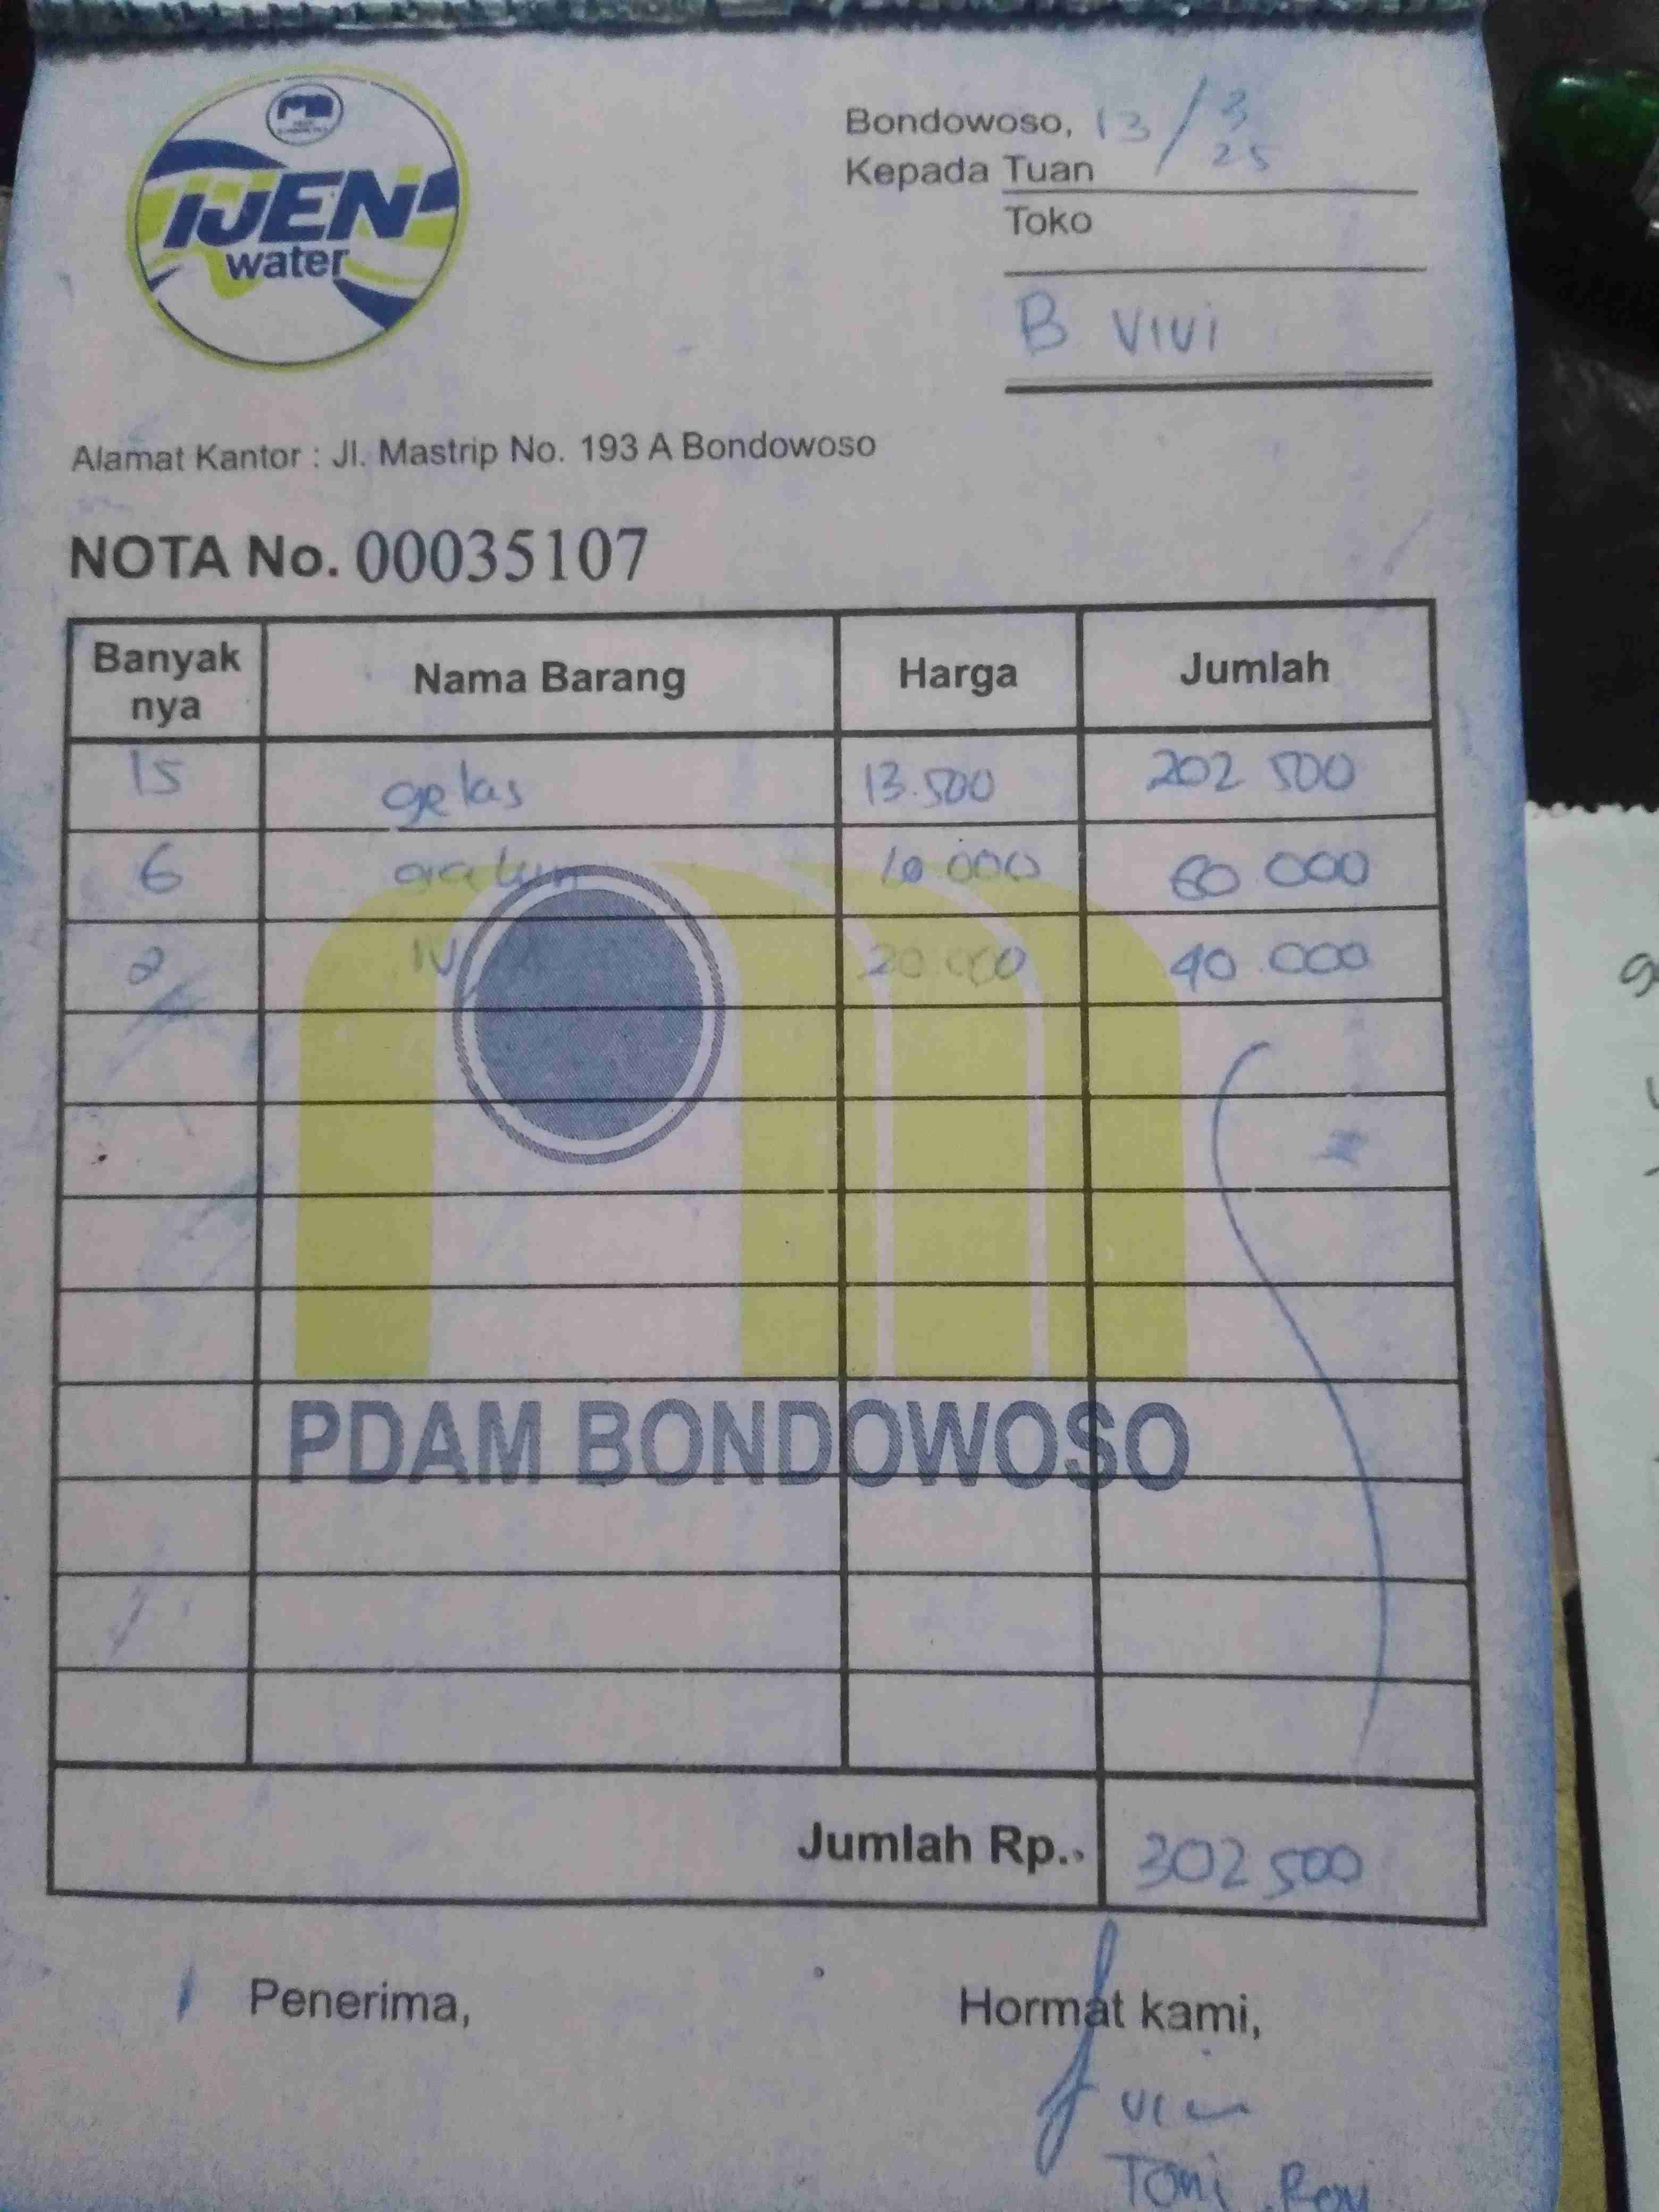 IJEN
water
Bondowoso, 13/3
25
Kepada Tuan
Toko
B Vivi
Alamat Kantor : Jl. Mastrip No. 193 A Bondowoso
NOTA No. 00035107
Banyak nya Nama Barang Harga Jumlah
15 gelas 13.500 202 500
6 10.000 60 000
2 20.000 40 000
PDAM BONDOWOSO
Jumlah Rp. 302 500
Penerima, Hormat kami,
Toni